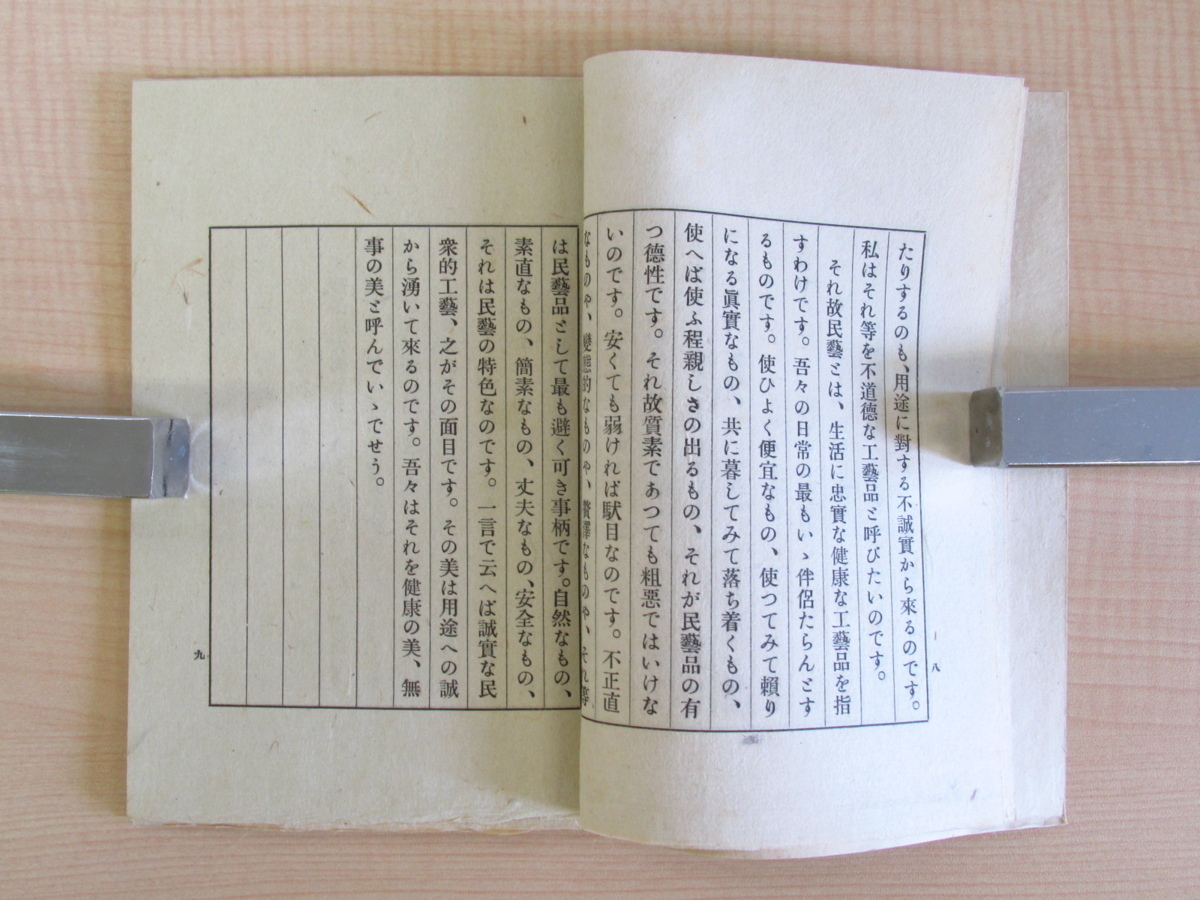 たりするのも、用途に對する不誠實から來るのです。
私はそれ等を不道德な工藝品と呼びたいのです。
それ故民藝とは、生活に忠實な健康な工藝品を指
すわけです。吾々の日常の最もいゝ伴侶たらんとす
るものです。使ひよく便宜なもの、使つてみて賴り
になる眞實なもの、共に暮してみて落ち着くもの、
使へば使ふ程親しさの出るもの、それが民藝品の有
つ德性です。それ故質素であつても粗惡ではいけな
いのです。安くても弱ければ駄目なのです。不正直
なものや、變態的なものや、贅澤なものや、それ等
八
は民藝品として最も避く可き事柄です。自然なもの、
素直なもの、簡素なもの、丈夫なもの、安全なもの、
それは民藝の特色なのです。一言で云へば誠實な民
衆的工藝、之がその面目です。その美は用途への誠
から湧いて來るのです。吾々はそれを健康の美、無
事の美と呼んでいゝでせう。
九